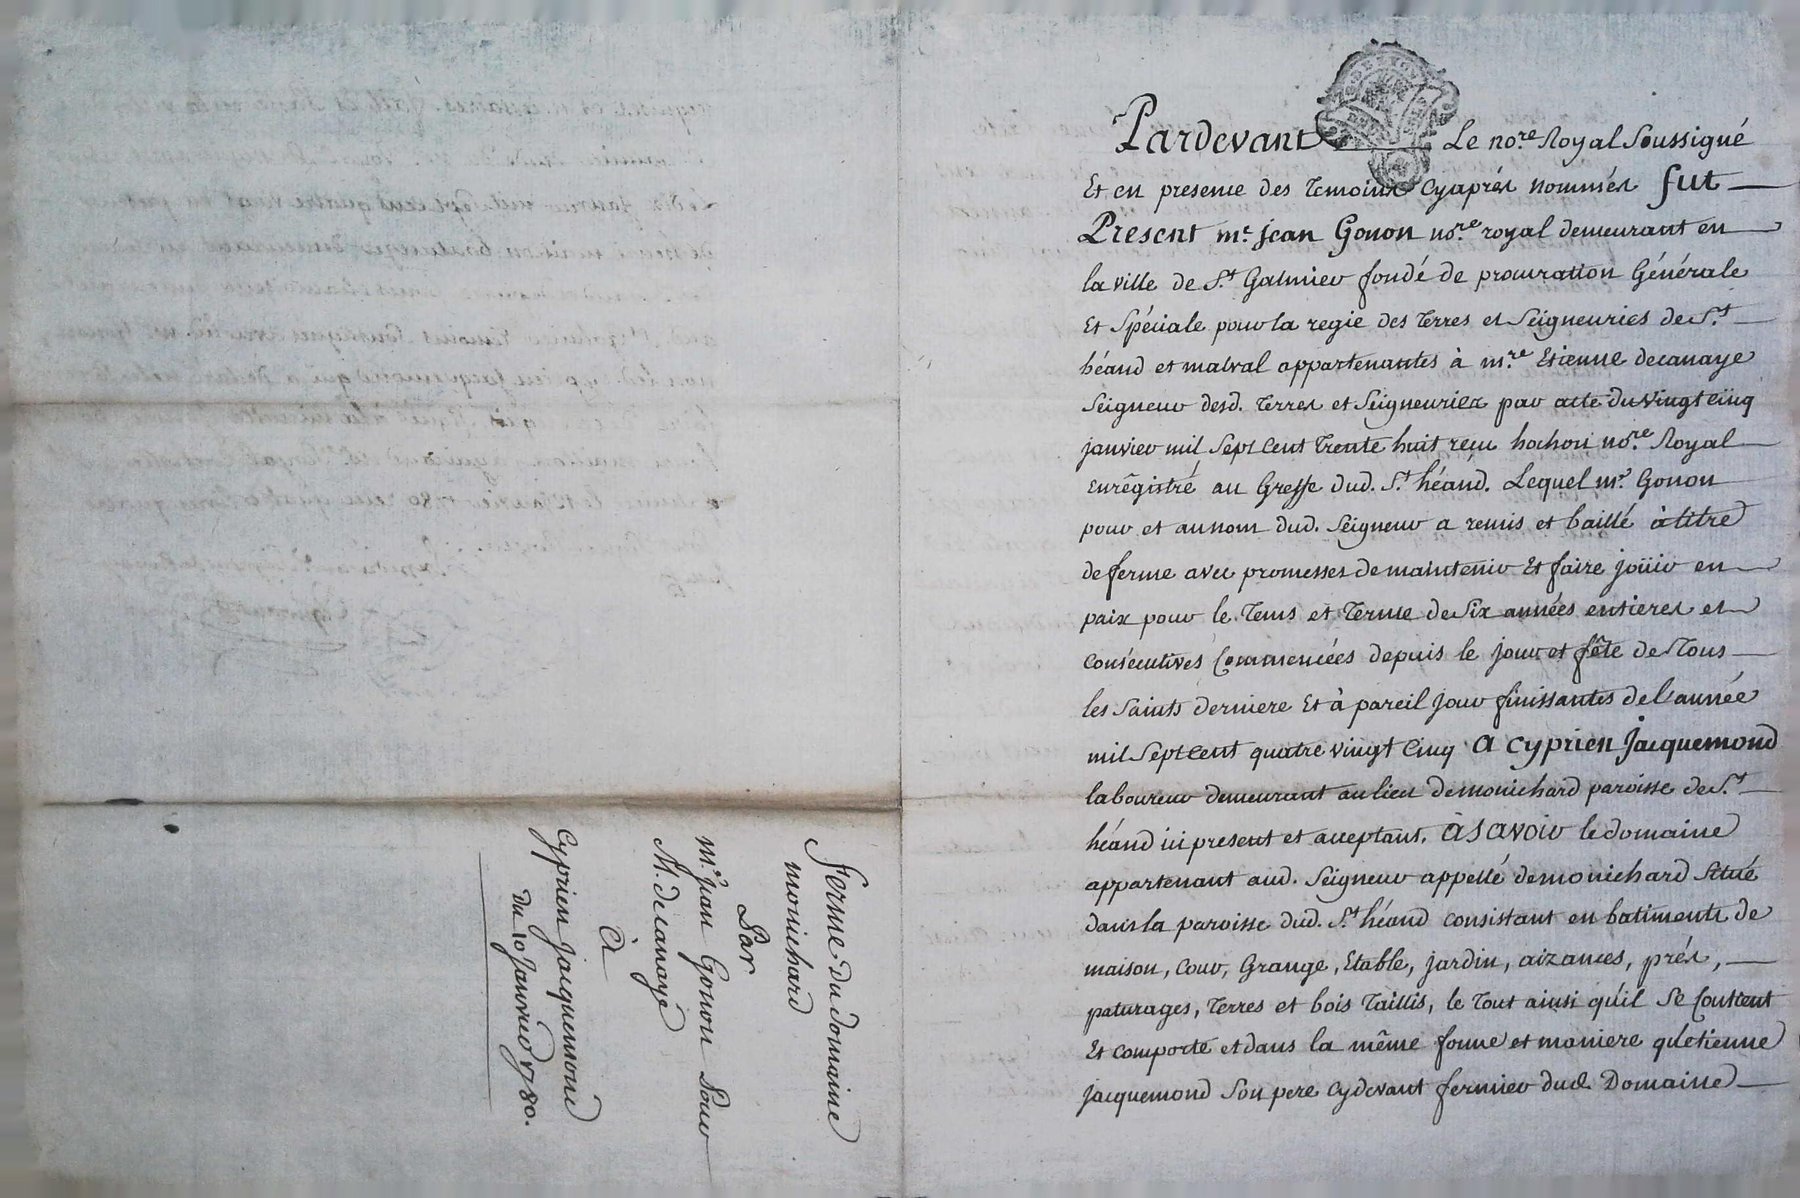 Pardevant Le no.re Royal Soussigné
Et en presence des Temoins cyaprés nommés fut
Present m.e jean Gonon no.re royal demeurant en
la ville de S.t Galmier fondé de procuration Générale
Et Spéciale pour la regie des Terres et Seigneuries de S.t
héand et malval appartenantes à m.re Etienne decanaye
Seigneur desd. Terres et Seigneuries par acte du vingt cinq
janvier mil Sept cent Trente huit recu no.re Royal
Enrêgistré au Greffe dud. S.t héand. Lequel m.e Gonon
pour et aunom dud. Seigneur a remis et baillé à titre
de ferme avec promesses de maintenir Et faire joüir en
paix pour le Tems et Terme de Six années entieres et
consécutives Commencées depuis le jour et fête de Tous
les Saints derniere Et à pareil jour finissantes de l'année
mil Sept cent quatre vingt cinq A cyprien Jacquemond
laboureur demeurant au lieu demonichard paroisse de S.t
héand ici present et acceptant. ASavoir le domaine
appartenant aud. Seigneur appellé demonichard Sctué
dans la paroisse dud. S.t héand consistant en batiments de
maison, Cour, Grange, Etable, jardin, aizances, prés,
paturages, Terres et bois Taillis, le Tout ainsi qu'il Se Contient
Et comporte et dans la même forme et maniere qu'etienne
jacquemond Son pere cydevant fermier dud. Domaine
Ferme du domaine
monichard
Par
m.e Jean Gonon pour
M. decanaye
à
Cyprien Jacquemond
du 10 Janvier 1780.